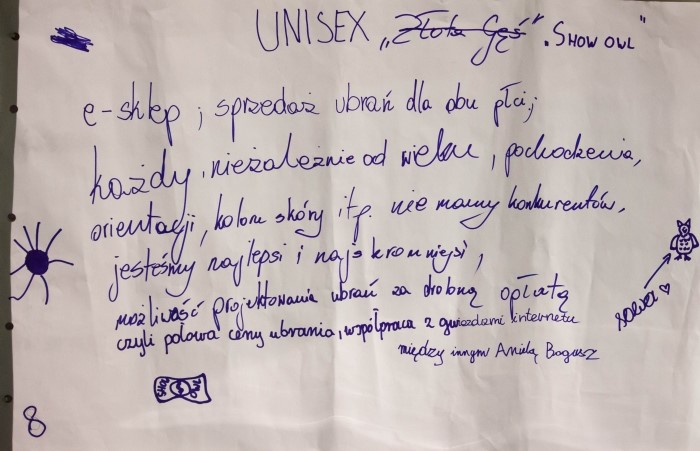 UNISEX „Złota Gęś" „SHOW OWL"
e-sklep; sprzedaż ubrań dla obu płci;
każdy, niezależnie od wieku, pochodzenia,
orientacji, koloru skóry itp. nie mamy konkurentów,
jesteśmy najlepsi i najskromniejsi,
możliwość projektowania ubrań za drobną opłatą
czyli połowa ceny ubrania, współpraca z gwiazdami internetu
między innymi Anielą Bogusz
sowa
8